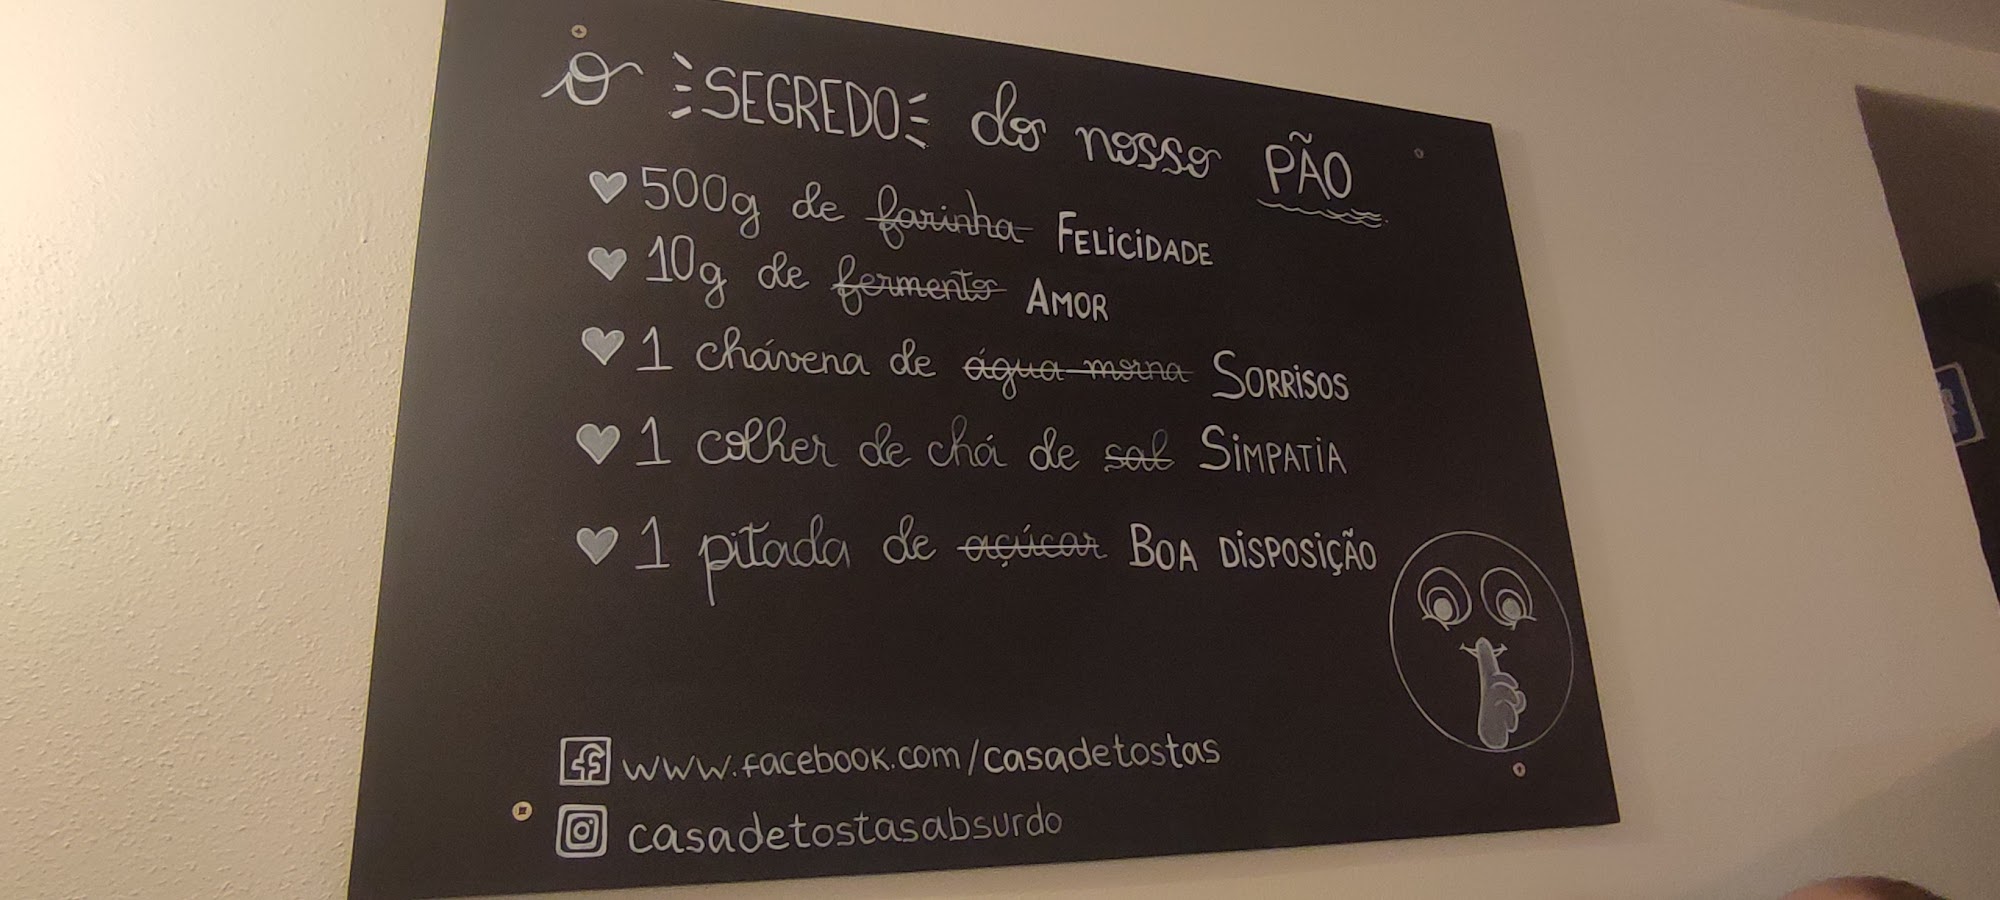 O SEGREDO do nosso PÃO
500g de farinha FELICIDADE
10g de fermento AMOR
1 chávena de água morna SORRISOS
1 colher de chá de sal SIMPATIA
1 pitada de açúcar BOA DISPOSIÇÃO
www.facebook.com/casadetostas
casadetostasabsurdo